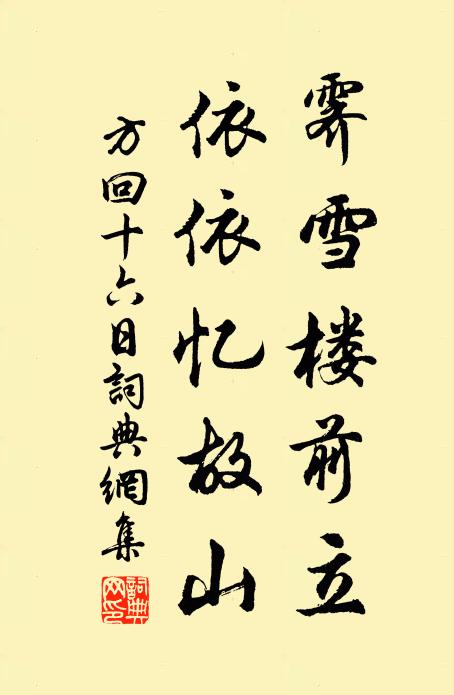 霁雪楼前立
依依忆故山
方回十六日詞典網集
詞典
网印